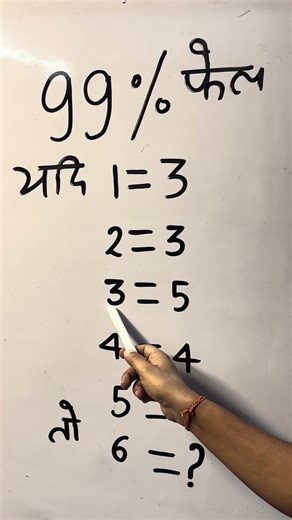 99% फेल
यदि 1=3
2=3
3=5
4=4
5=
तो 6=?